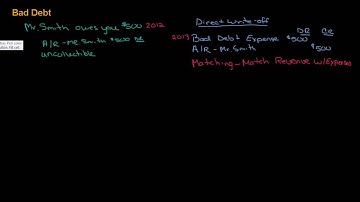 Bad Debt
Mr. Smith owes you $500 2012
A/R - Mr. Smith $500 DR
uncollectible
Direct Write-off
DR CR
2013 Bad Debt Expense $500
A/R - Mr. Smith $500
Matching - Match Revenue w/Expenses